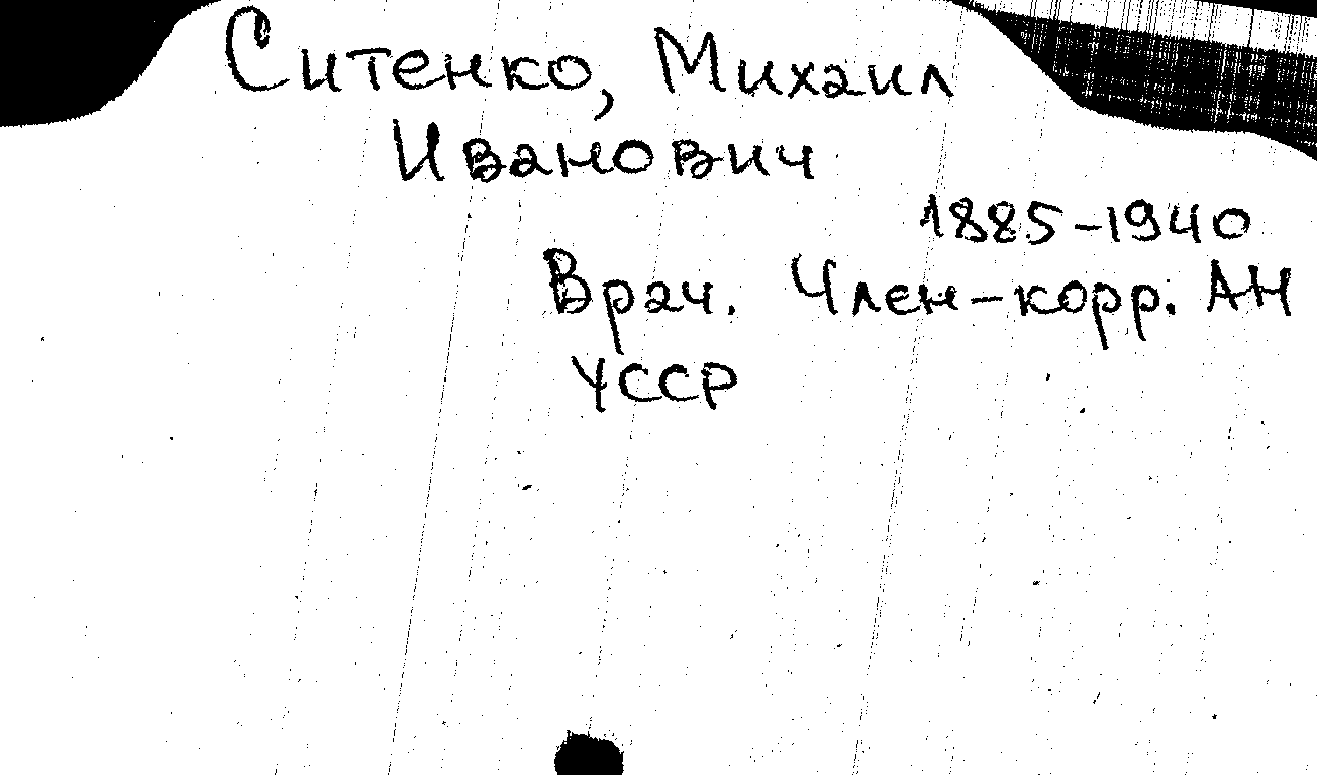 Ситенко, Михаил
Иванович
1885-1940
Врач. Член-корр. АН
УССР